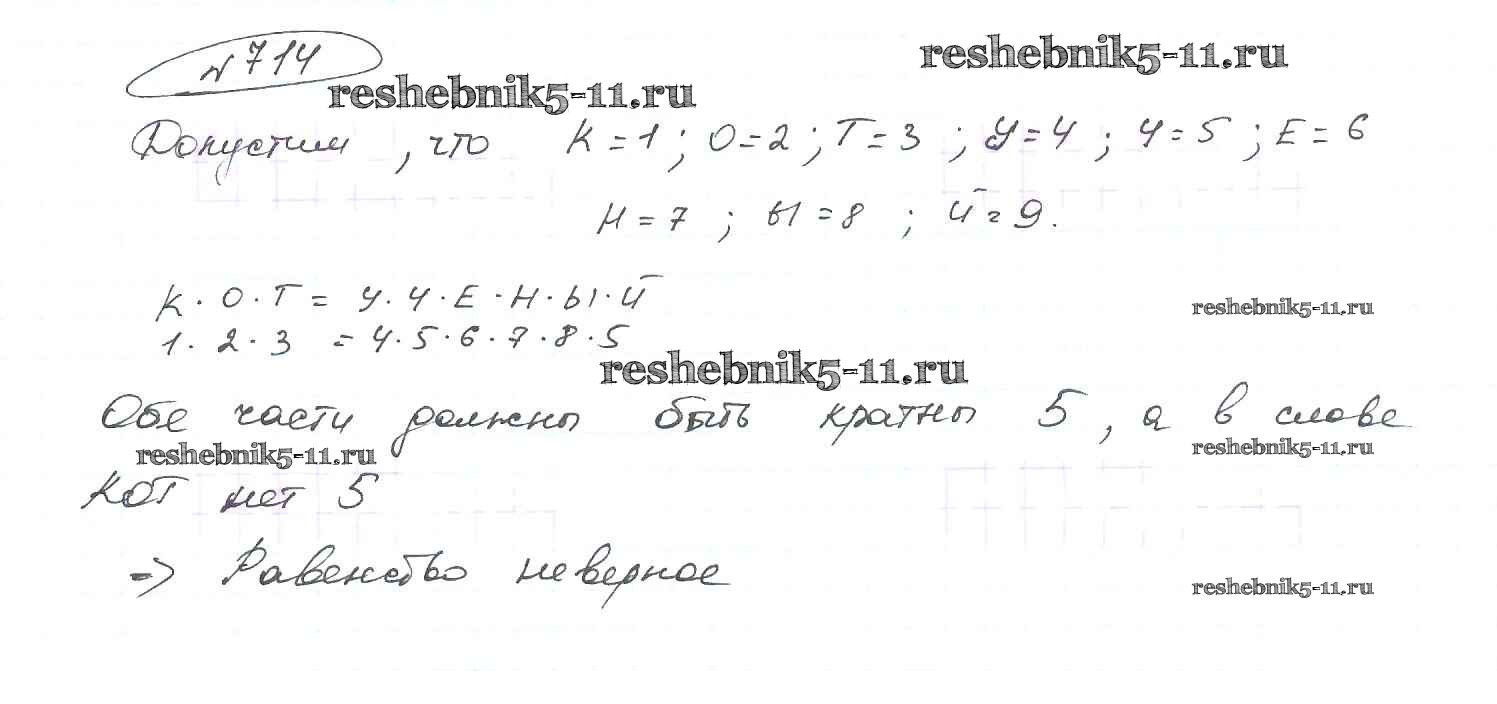 reshebnik5-11.ru
№ 714
reshebnik5-11.ru
Допустим, что К = 1 ; О = 2 ; Т = 3 ; У = 4 ; Ч = 5 ; Е = 6
Н = 7 ; Ы = 8 ; Й = 9.
К · О · Т = У · Ч · Е · Н · Ы · Й
reshebnik5-11.ru
1 · 2 · 3 = 4 · 5 · 6 · 7 · 8 · 5
reshebnik5-11.ru
Обе части должны быть кратны 5, а в слове
reshebnik5-11.ru
reshebnik5-11.ru
КОТ нет 5
=> Равенство неверное
reshebnik5-11.ru